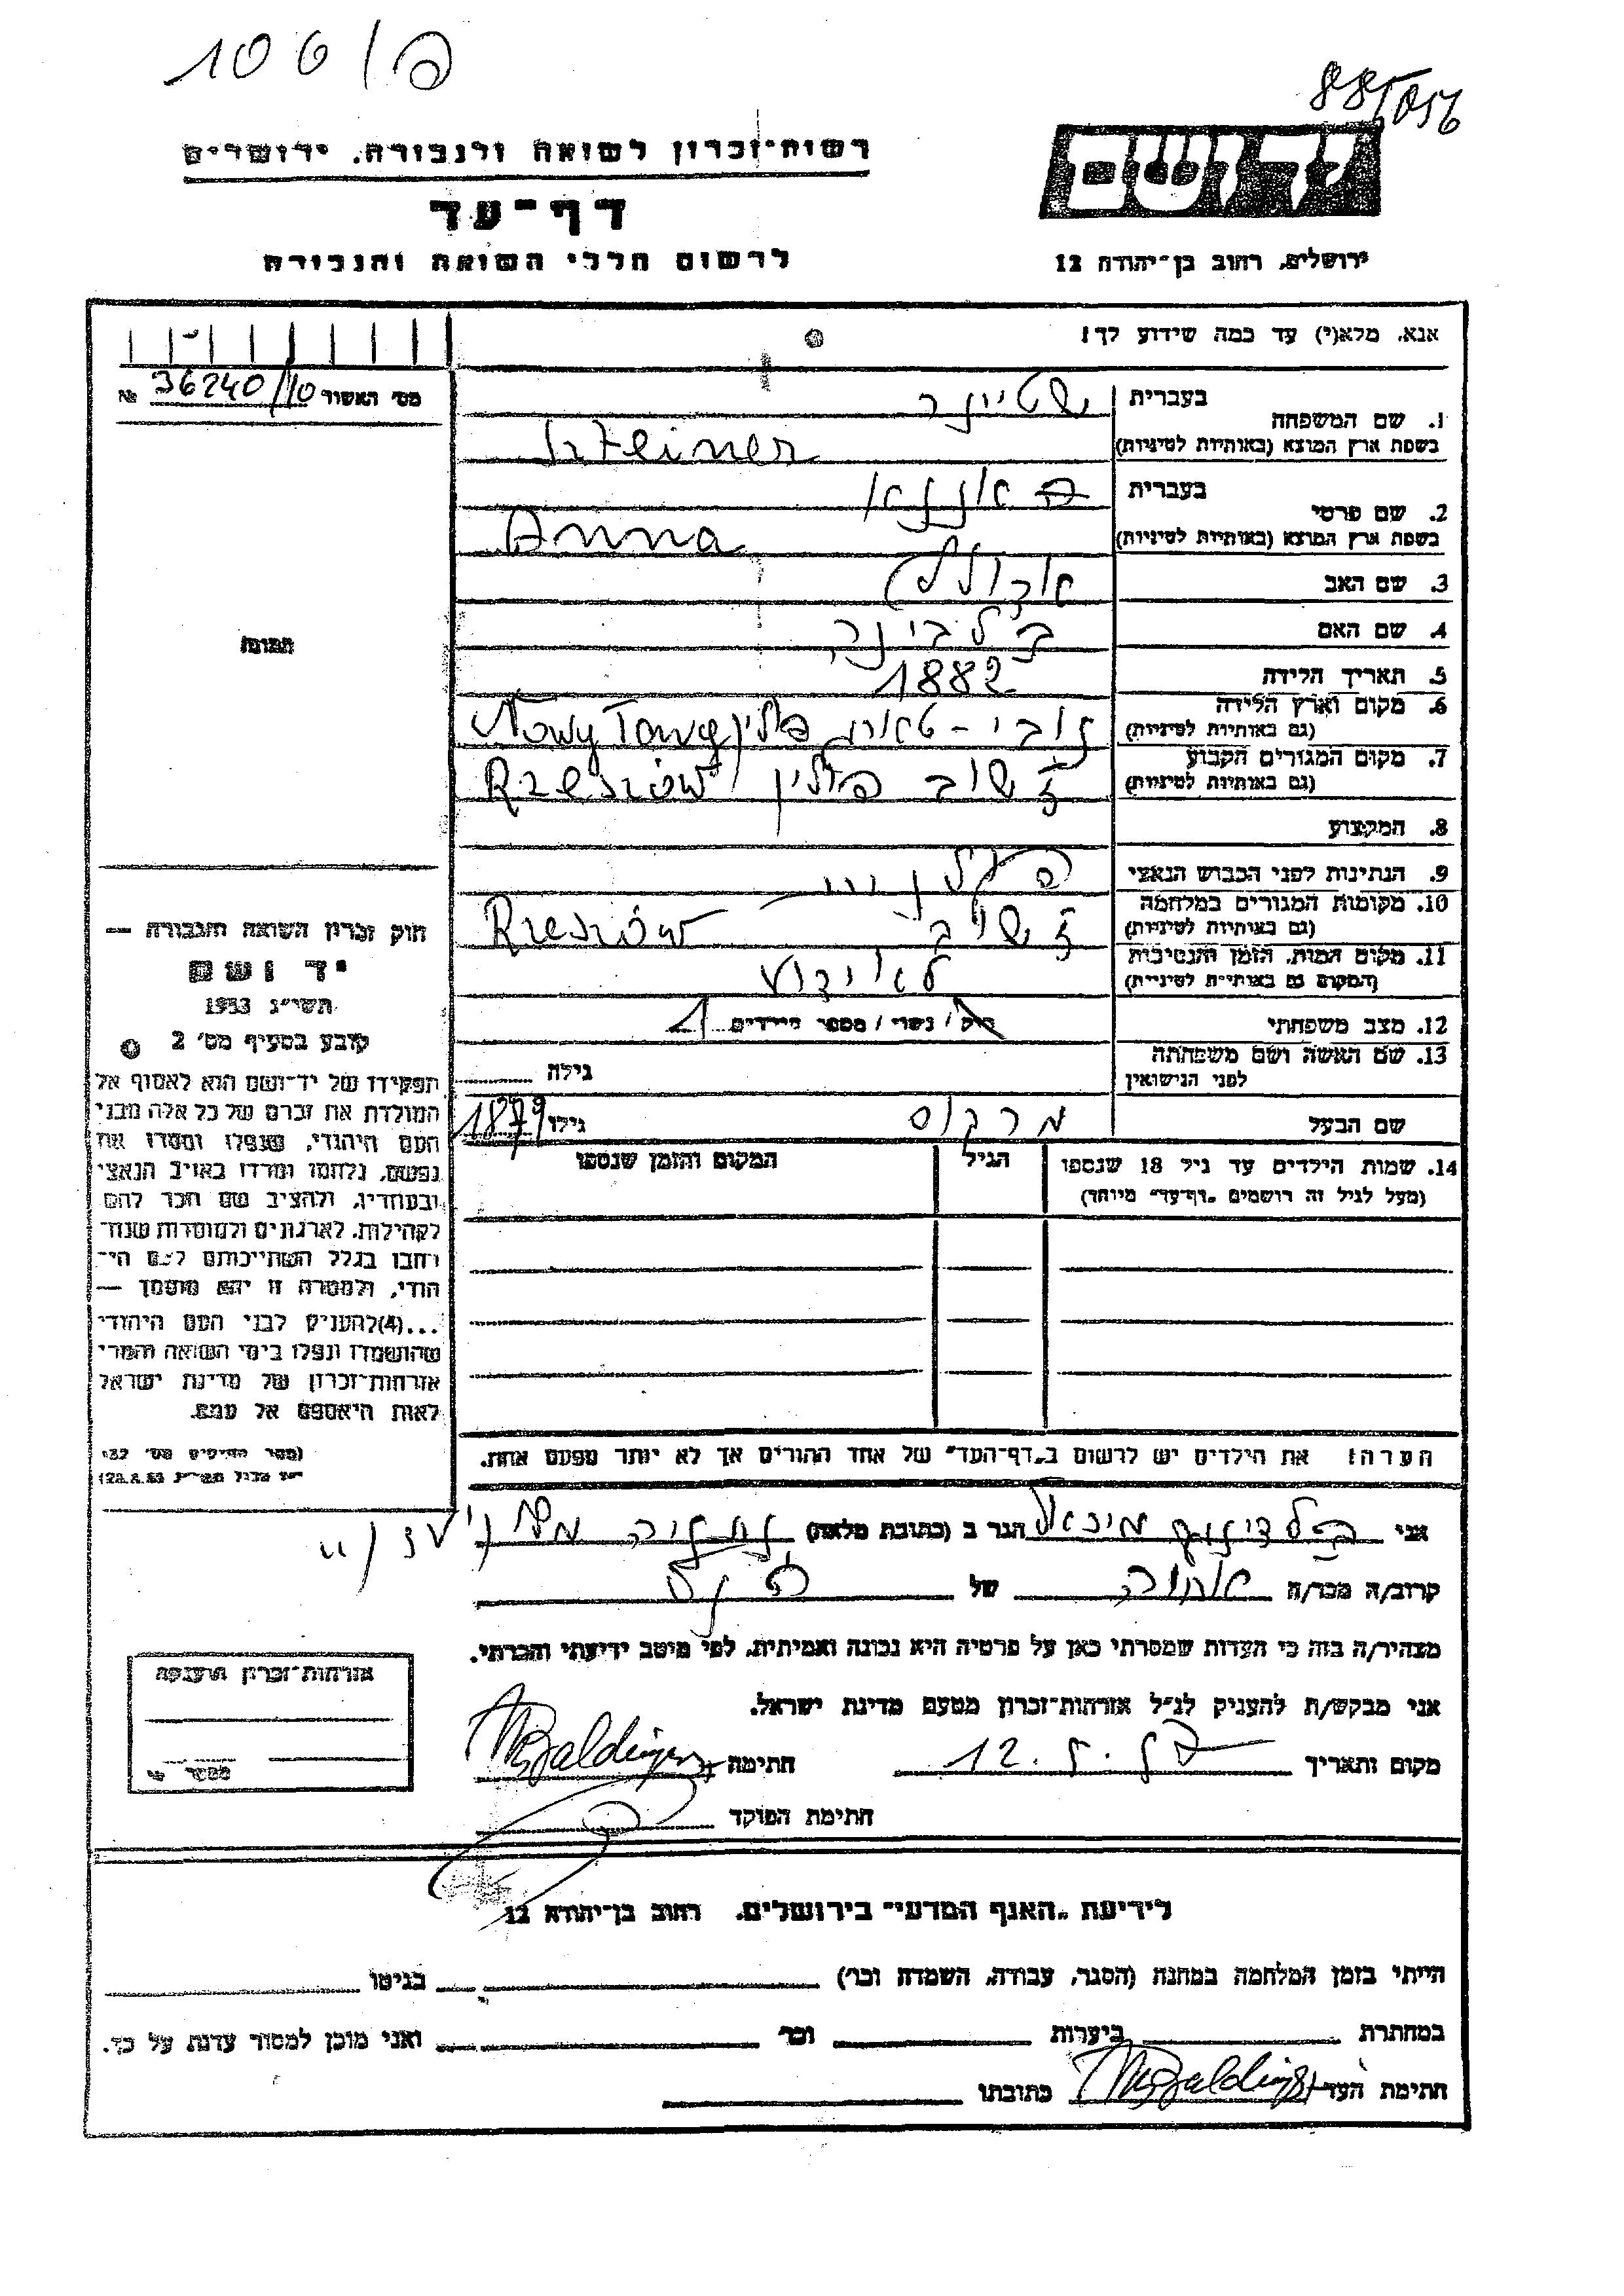 106/פ
885/056
רשות־זכרון לשואה ולגבורה, ירושלים
דף־עד
לרשום חללי השואה והגבורה
יד ושם
ירושלים, רחוב בן־יהודה 12
אנא, מלא(י) עד כמה שידוע לך!
מס׳ האשור 36240/10 №
1. שם המשפחה בעברית שטיינר
בשפת ארץ המוצא (באותיות לטיניות) Szteiner
2. שם פרטי בעברית אננא
בשפת ארץ המוצא (באותיות לטיניות) Anna
3. שם האב
4. שם האם
5. תאריך הלידה 1882
6. מקום וארץ הלידה נובי-טארג פולין Nowy Targ
(גם באותיות לטיניות)
7. מקום המגורים הקבוע ז׳שוב פולין Rzeszów
(גם באותיות לטיניות)
8. המקצוע
9. הנתינות לפני הכבוש הנאצי
10. מקומות המגורים במלחמה ז׳שוב Rzeszów
(גם באותיות לטיניות)
11. מקום המות, הזמן והנסיבות לא ידוע
(המקום גם באותיות לטיניות)
12. מצב משפחתי רוק / נשוי / מספר הילדים 1
13. שם האשה ושם משפחתה
לפני הנישואין גילה
שם הבעל מרקוס גילו 1879
14. שמות הילדים עד גיל 18 שנספו הגיל המקום והזמן שנספו
(מעל לגיל זה רושמים „דף־עד” מיוחד)
הערה! את הילדים יש לרשום ב„דף־העד” של אחד ההורים אך לא יותר מפעם אחת.
תמונה
חוק זכרון השואה והגבורה —
יד ושם
תשי״ג 1953
קובע בסעיף מס׳ 2
תפקידו של יד־ושם הוא לאסוף אל
המולדת את זכרם של כל אלה מבני
העם היהודי, שנפלו ומסרו את
נפשם, נלחמו ומרדו באויב הנאצי
ובעוזריו, ולהציב שם וזכר להם
לקהילות, לארגונים ולמוסדות שנח־
רבו בגלל השתייכותם לעם הי־
הודי, ולמטרה זו יהא מוסמך —
...(4) להעניק לבני העם היהודי
שהושמדו ונפלו בימי השואה והמרי
אזרחות־זכרון של מדינת ישראל
לאות היאספם אל עמם.
(ספר החוקים מס׳ 132
28.8.53)
אני בלדינגר מיכאל הגר ב (כתובת מלאה) נהריה
קרוב/ה מכר/ה של
מצהיר/ה בזה כי העדות שמסרתי כאן על פרטיה היא נכונה ואמיתית, לפי מיטב ידיעתי והכרתי.
אני מבקש/ת להעניק לנ״ל אזרחות־זכרון מטעם מדינת ישראל.
מקום ותאריך 12. חתימה MBaldinger
חתימת הפוקד
אזרחות־זכרון הוענקה
מספר
לידיעת „האגף המדעי” בירושלים, רחוב בן־יהודה 12
הייתי בזמן המלחמה במחנה (הסגר, עבודה, השמדה וכו׳) בגיטו
במחתרת ביערות וכו׳ ואני מוכן למסור עדות על כך.
חתימת העד MBaldinger כתובתו